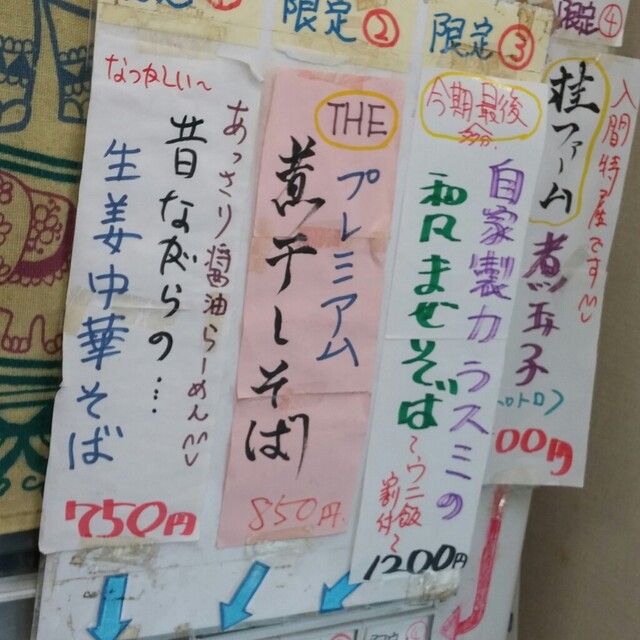 限定①
なつかしい〜
あっさり醤油らーめん
昔ながらの…
生姜中華そば
750円
限定②
THE
プレミアム
煮干しそば
850円
限定③
今期最後
自家製カラスミの
和えませそば
〜ウニ飯
付〜
1200円
限定④
入間特産です
桂ファーム
煮玉子
00円